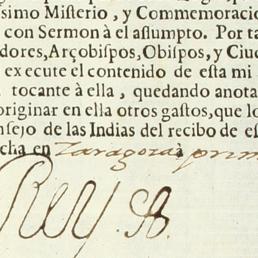 simo Misterio, y Commemoracio
con Sermon à el assumpto. Por ta
dores, Arçobispos, Obispos, y Ciud
execute el contenido de esta mi
tocante à ella, quedando anota
originar en ella otros gastos, que lo
nsejo de las Indias del recibo de es
cha en Zaragoza à prim
Rey